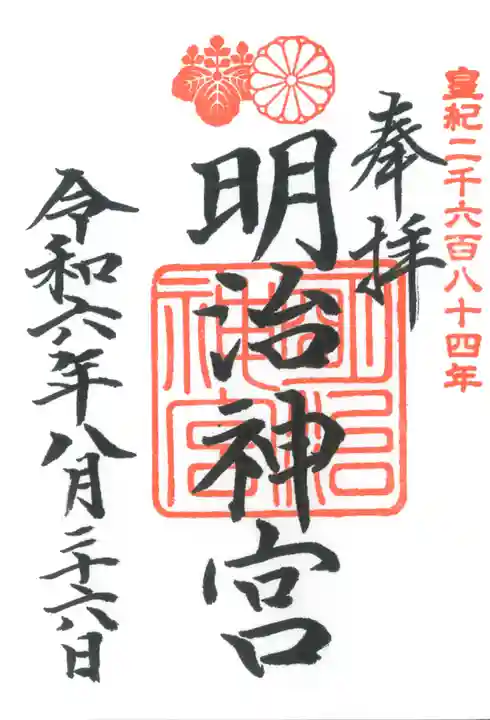 皇紀二千六百八十四年
奉拝
明治神宮
明治神宮
令和六年八月二十六日